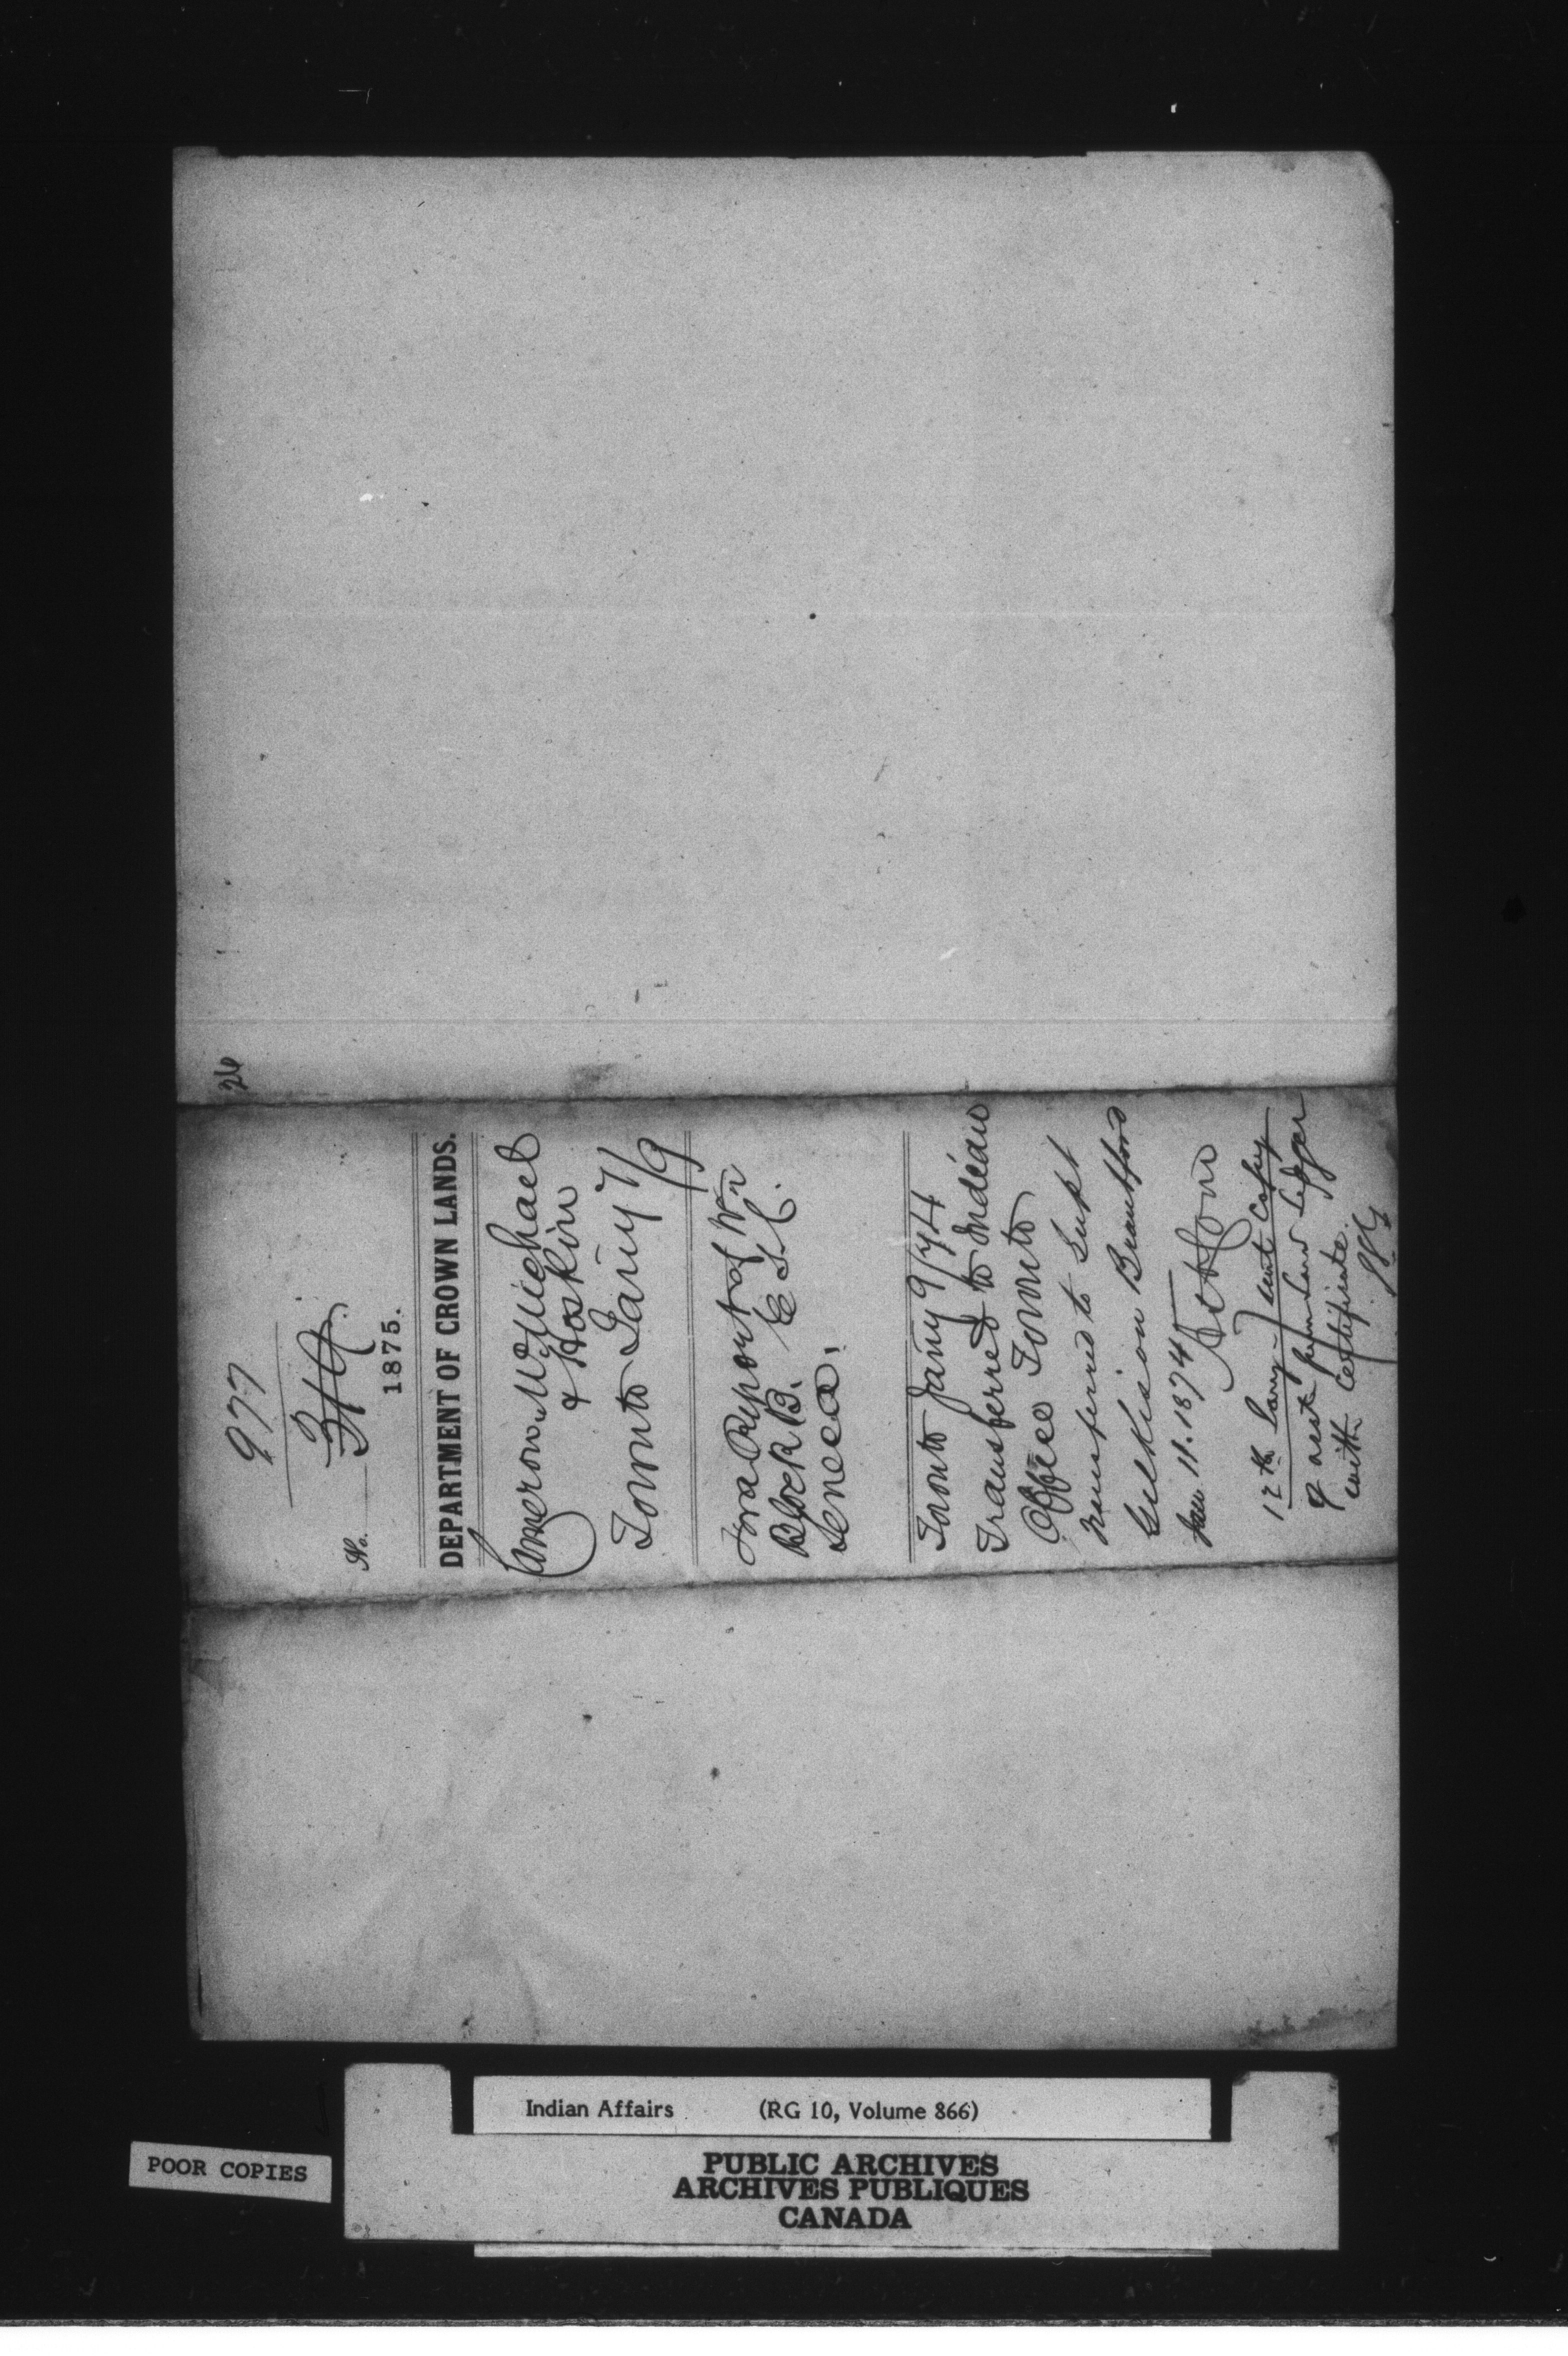 26
977
No. 314
1875.
DEPARTMENT OF CROWN LANDS.
Cameron McMichael
& Hoskin
Toronto Jany 7/9
For a Report of Wn
Block B. E S. C.
Seneca.
Toronto Jany 9/74
Transferred to Indian
Office Toronto
Transferred to Supt
Gilkison Brantford
Jan. 11. 1874
12th Jany sent copy
with Certificate.
Indian Affairs (RG 10, Volume 866)
POOR COPIES
PUBLIC ARCHIVES
ARCHIVES PUBLIQUES
CANADA